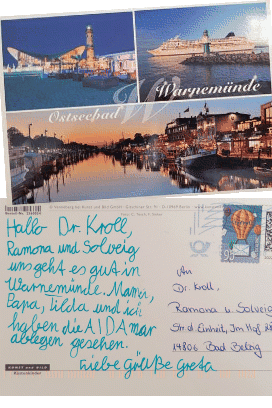 Ostseebad
W
Warnemünde
Hallo Dr. Kroll,
Ramona und Solveig
uns geht es gut in
Warnemünde. Mama,
Papa, Tilda und ich
haben die AIDAmar
ablegen gesehen.
Liebe Grüße Greta
An
Dr. Kroll,
Ramona u. Solveig
Str. d. Einheit, Im Hof
14806 Bad Belzig
95